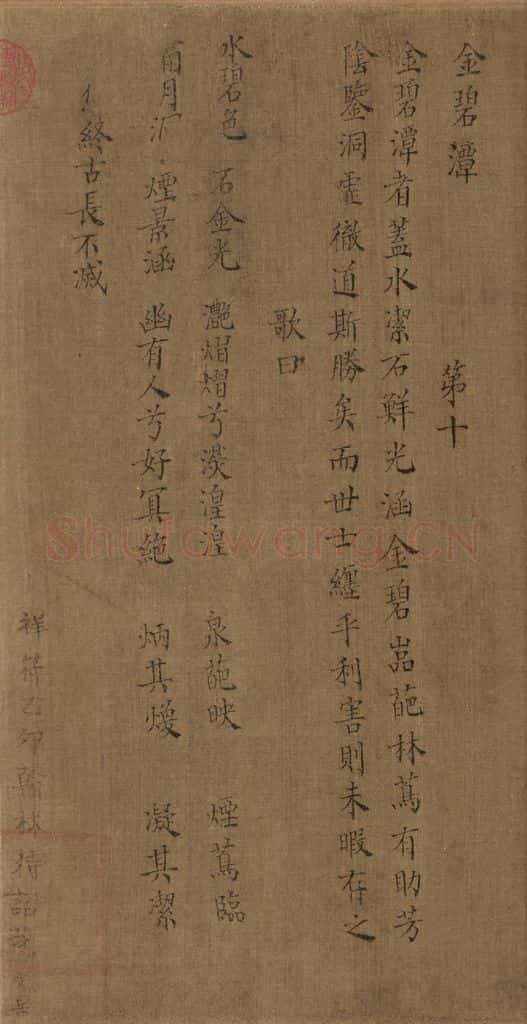 金碧潭 第十
金碧潭者蓋水潔石鮮光涵金碧嵓葩林蔦有助芳
陰鑒洞虛徹道斯勝矣而世士纏乎利害則未暇存之
歌曰
水碧色 石金光 灔熠熠兮漾湟湟 泉葩映 煙蔦臨
月汇 煙景涵 幽有人兮好冥絶 炳其焕 凝其潔
終古長不滅
祥符乙卯翰林待詔
Shufawang.CN